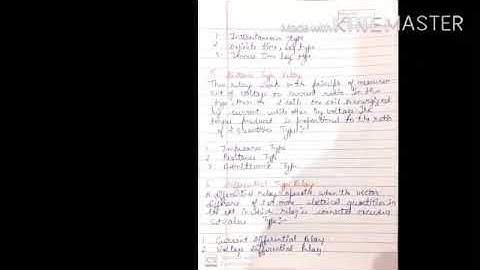 Made with KINEMASTER
1. Instantaneous type
2. Definite time lag type
3. Inverse Time lag type
Distance Type Relay
This relay work on the principle of measure
ment of voltage to current ratio. In this
type, there are 2 coils. One coil is energized
by current while other by voltage. The
torque produced is proportional to the ratio
of 2 quantities Type:-
1. Impedance Type
2. Reactance Type
3. Admittance Type
Differential Type Relay
A differential relay operate when the vector
difference of 2 or more electrical quantities in
the ckt in which relay is connected exceeding
set value. Type:-
1. Current Differential Relay
2. Voltage Differential Relay